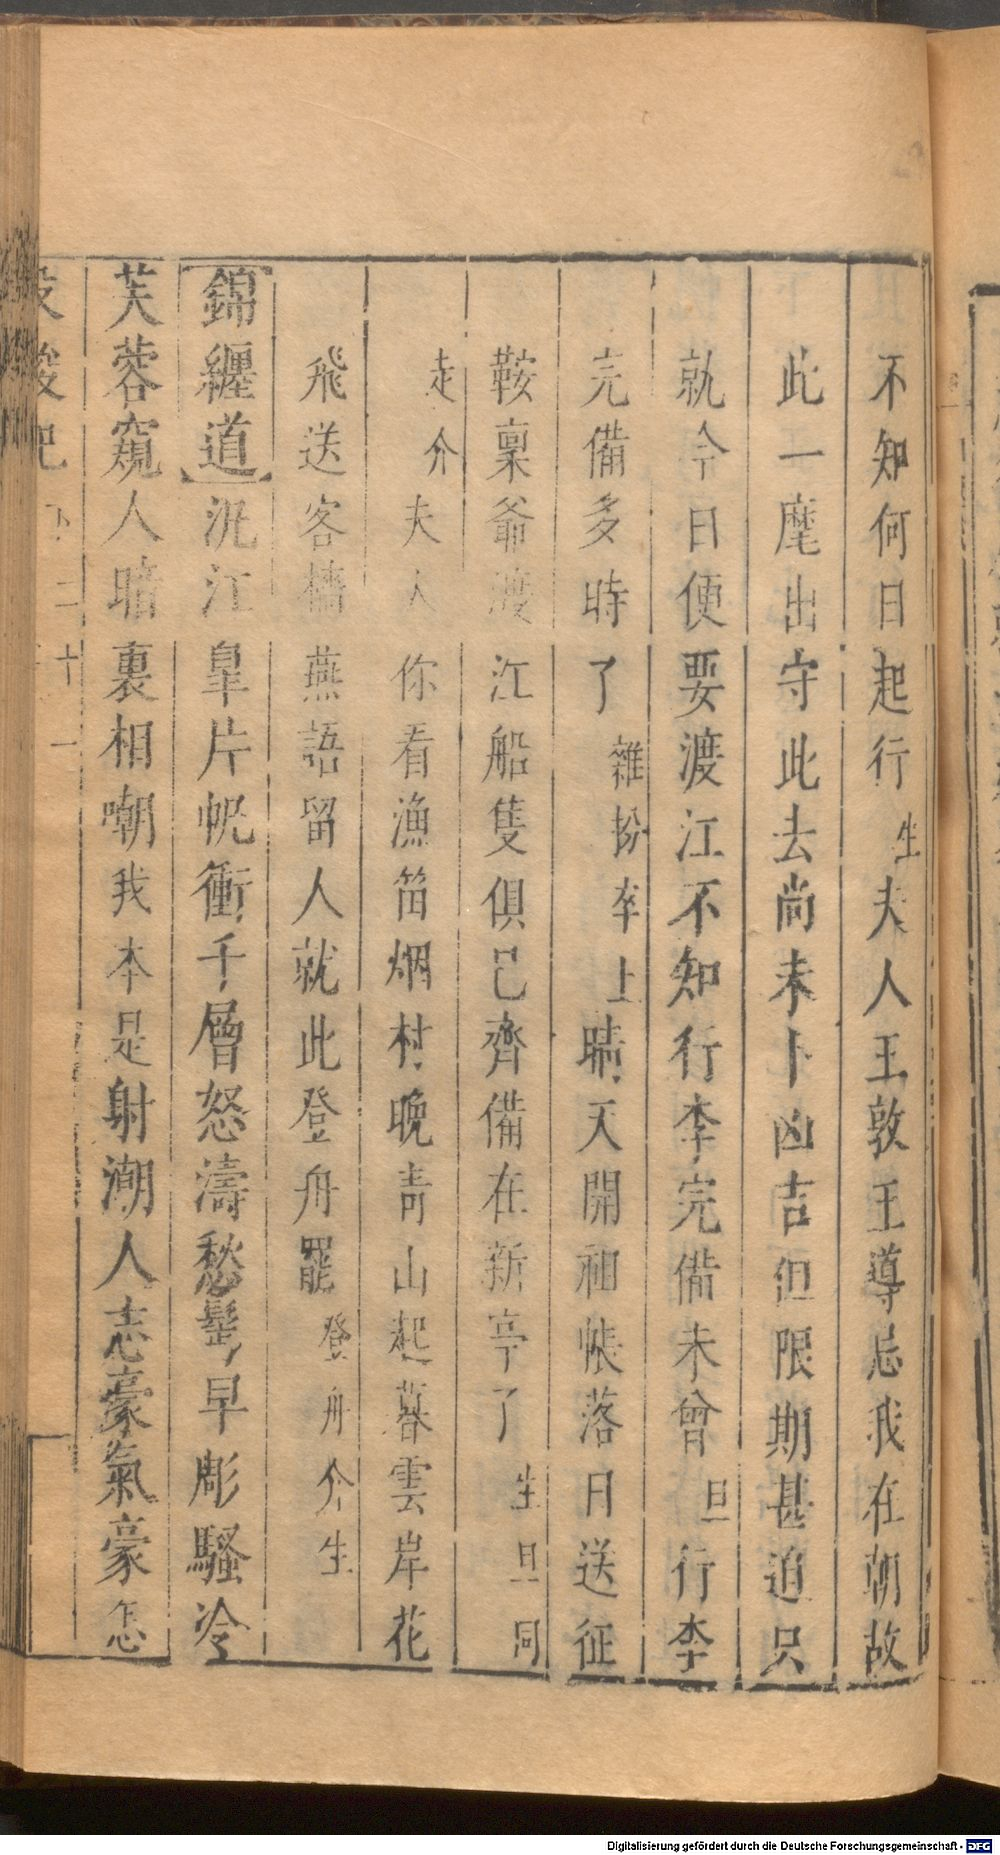 不知何日起行生夫人王敦王導忌我在朝故
此一麾出守此去尚未卜凶吉但限期甚迫只
就今日便要渡江不知行李完備未曾旦行李
完備多時了雜扮卒上晴天開祖帳落日送征
鞍稟爺渡江船隻俱已齊備在新亭了生旦同
走介夫人你看漁笛烟村晚青山起暮雲岸花
飛送客檣燕語留人就此登舟罷登舟介生
錦纏道汎江臯片帆衝千層怒濤愁鬢早彫騷冷
芙蓉窺人暗裏相嘲我本是射潮人志豪氣豪怎
下二十一
Digitalisierung gefördert durch die Deutsche Forschungsgemeinschaft - DFG